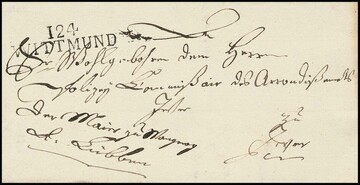 124
WITTMUND
Sr. Wohlgebohren dem Herrn
Polizey Commissair des Arrondissements
Jever
zu
Der Maire zu
Jever